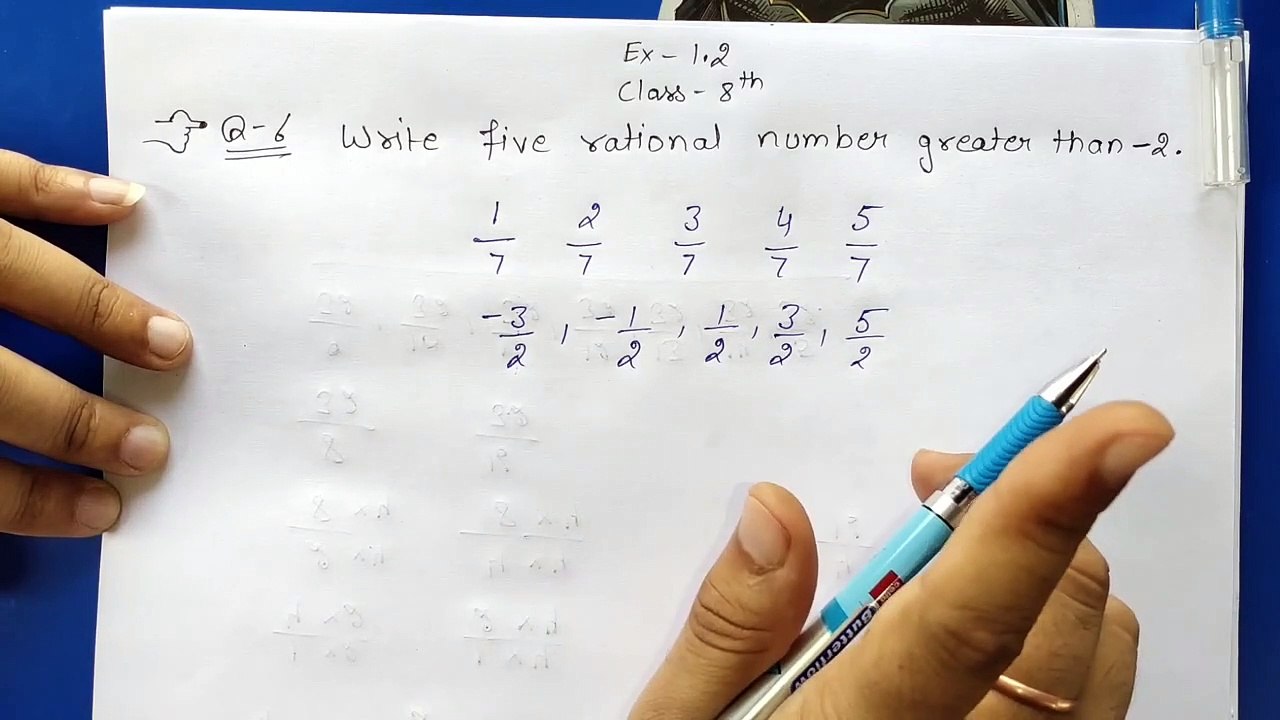 Ex - 1.2
Class - 8th
Q-6 Write five rational number greater than -2.
1/7 2/7 3/7 4/7 5/7
-3/2, -1/2, 1/2, 3/2, 5/2
Butterflow